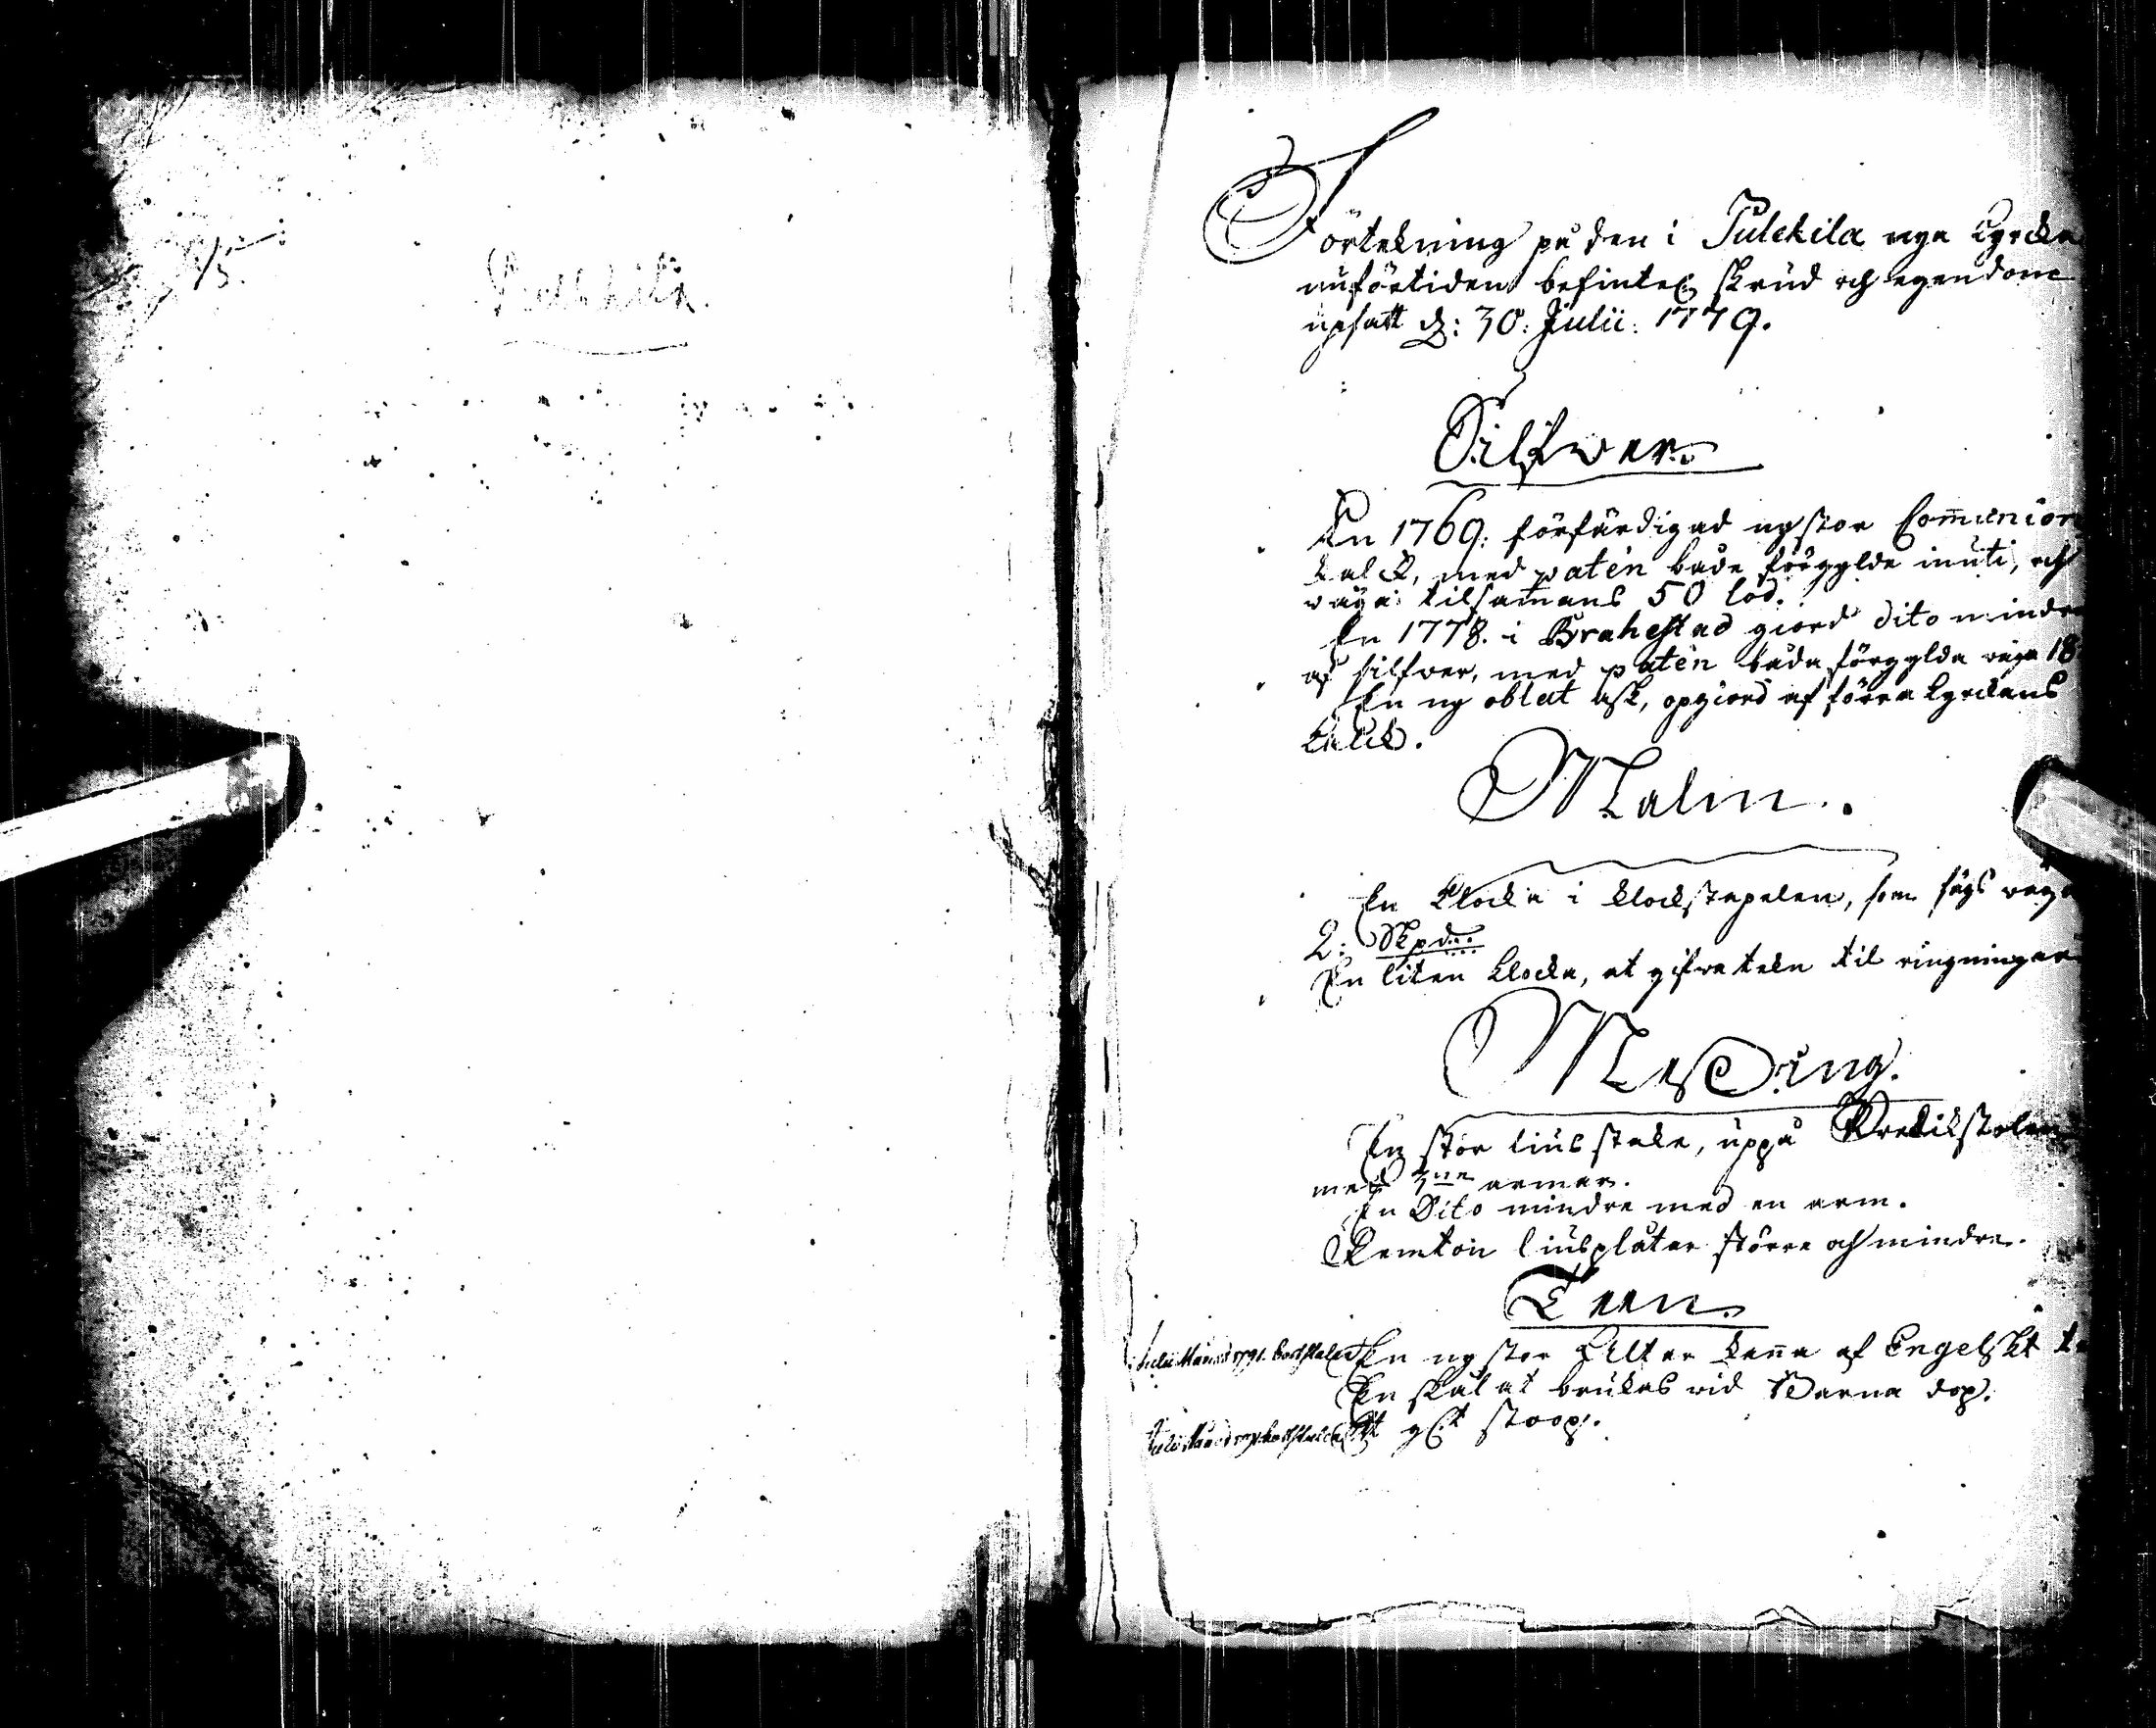 Pulkkila.
Förtekning på den i Pulckila nya Kyrcka
nuförtiden befintel. skrud och egendom
upsatt d: 30: Julii: 1779.
Silfwer.
En 1769: förfärdigad ny stor Comunion
kalck, med patèn både förgylde inuti, och
wäga tilsamans 50 lod.
En 1778. i Brahestad giord dito mindre
af silfwer, med patèn båda förgylda wäga 18
En ny oblat ask, opgiord af förra kyrckans
kalck.
Malm.
En klocka i klockstapelen, som sägs wäga
2: Skpd:
En liten klocka, at gifwa tekn til ringningar
Messing.
En stor liusstake, uppå Predikstolen
med 3ne armar.
En Dito mindre med en arm.
Femton liusplåtar större och mindre.
Teen.
Julii Månad 1791. bortstulen En ny stor Altar kanna af Engelskt te
En skål at brukas vid Barna dop.
Julii Månad 1791 bortstulen Ett stoop.